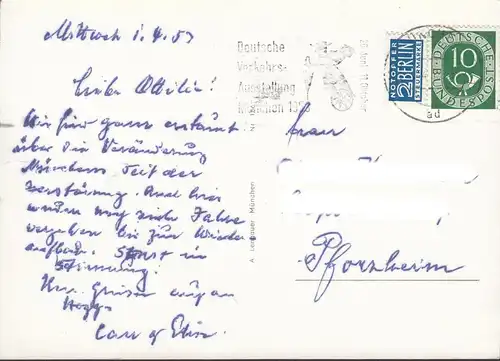 Mittwoch 1.4.53
Liebe Ottilie!
Wir sind ganz erstaunt
über die Veränderung
Münchens seit der
Zerstörung. Aber bis
werden noch viele Jahre
vergehen bis zum Wieder
aufbau. Sonst in
Stimmung!
Grüsse
Deutsche
Verkehrs-
Ausstellung
München 195
20. Juni - 11. Oktober
NOTOPFER
2 BERLIN
STEUERMARKE
DEUTSCHE BUNDESPOST
10
ad
Frau
Pforzheim
A. Lengauer, München